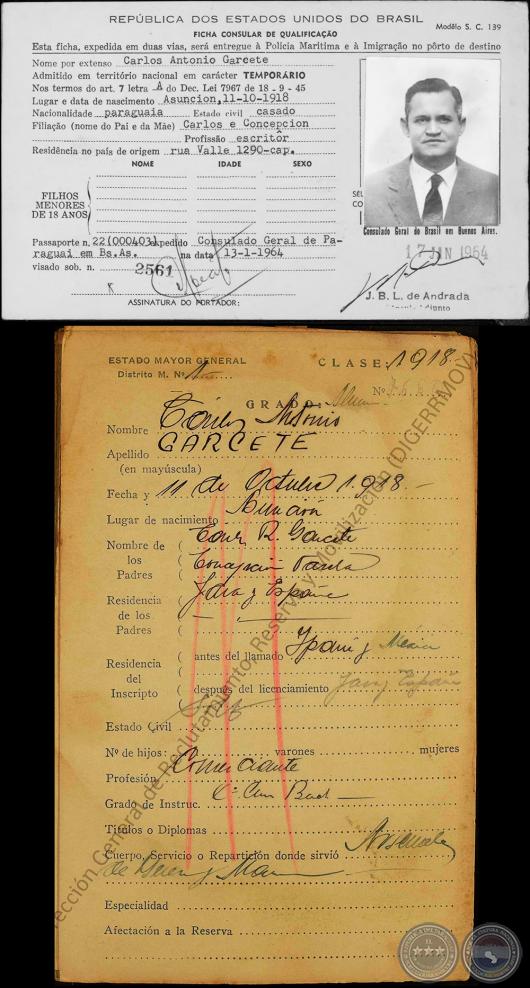 REPÚBLICA DOS ESTADOS UNIDOS DO BRASIL
Modêlo S. C. 139
FICHA CONSULAR DE QUALIFICAÇÃO
Esta ficha, expedida em duas vias, será entregue à Polícia Marítima e à Imigração no pôrto de destino
Nome por extenso Carlos Antonio Garcete
Admitido em território nacional em carácter TEMPORÁRIO
Nos termos do art. 7 letra A do Dec. Lei 7967 de 18 - 9 - 45
Lugar e data de nascimento Asuncion, 11-10-1918
Nacionalidade paraguaia Estado civil casado
Filiação (nome do Pai e da Mãe) Carlos e Concepcion
Profissão escritôr
Residência no país de origem rua Valle 1290-cap.
NOME IDADE SEXO
FILHOS
MENORES
DE 18 ANOS
Passaporte n. 22(000403) expedido Consulado Geral de Pa-
raguai em Bs.As. na data 13-1-1964
visado sob. n. 2561
ASSINATURA DO PORTADOR:
Consulado Geral do Brasil em Buenos Aires.
17 JAN 1964
J. B. L. de Andrada
ESTADO MAYOR GENERAL
CLASE: 1918-
Distrito M. Nº
Nº
GRADO:
Nombre Carlos Antonio
Apellido GARCETE
(en mayúscula)
Fecha y 11 de Octubre 1918.-
Lugar de nacimiento Asunción
Nombre de ( Carlos R. Garcete
los ( Concepción
Padres (
Residencia ( Jara y España
de los (
Padres (
Residencia ( antes del llamado
del (
Inscripto ( después del licenciamiento Jara y España
Estado Civil
Nº de hijos: varones mujeres
Profesión Comerciante
Grado de Instruc.
Títulos o Diplomas
Cuerpo, Servicio o Repartición donde sirvió Arsenales
de Guerra y Marina
Especialidad
Afectación a la Reserva
Dirección General de Reclutamiento, Reserva y Movilización (DIGERRMOV)